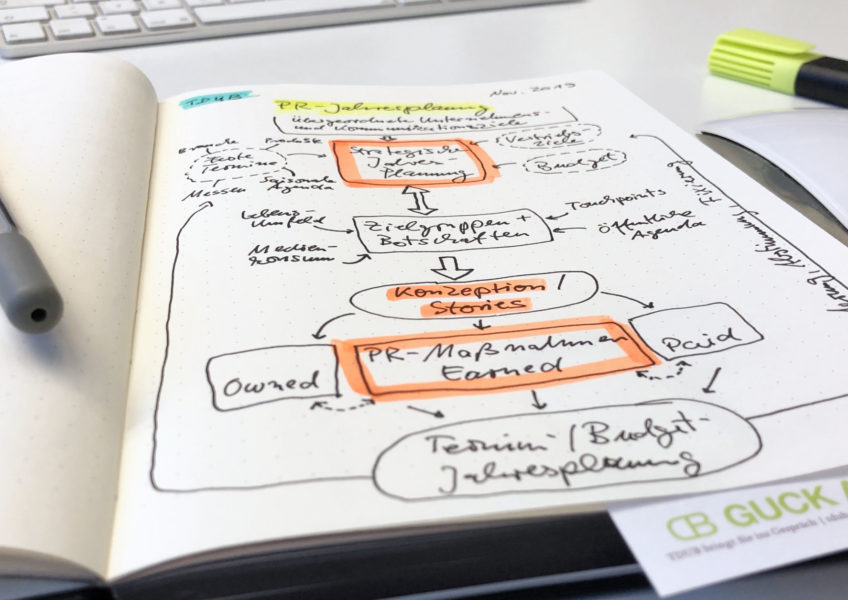 TDUB
Nov. 2019
PR-Jahresplanung
übergeordnete Unternehmens-
und Kommunikationsziele
Vertriebs-
Ziele
Budget
Strategische
Jahres-
Planung
Feste
Termine
Messen
Saisonale
Agenda
Lebens-
Umfeld
Medien-
konsum
Zielgruppen +
Botschaften
Touchpoints
öffentliche
Agenda
Konzeption /
Stories
Owned
PR-Maßnahmen
Earned
Paid
Termin- / Budget-
Jahresplanung
GUCK
TDUB bringt Sie ins Gespräch |